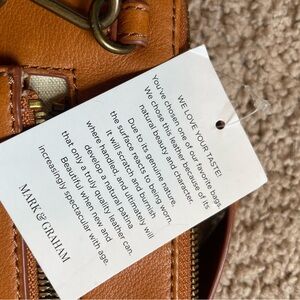 WE LOVE YOUR TASTE!
You've chosen one of our favorite bags.
We chose this leather because of its
natural beauty and character.
Due to its genuine nature,
the surface reacts to being worn,
it will scratch and burnish
where handled, and ultimately will
develop a natural patina
that only a truly quality leather can.
Beautiful when new and
increasingly spectacular with age.
MARK & GRAHAM